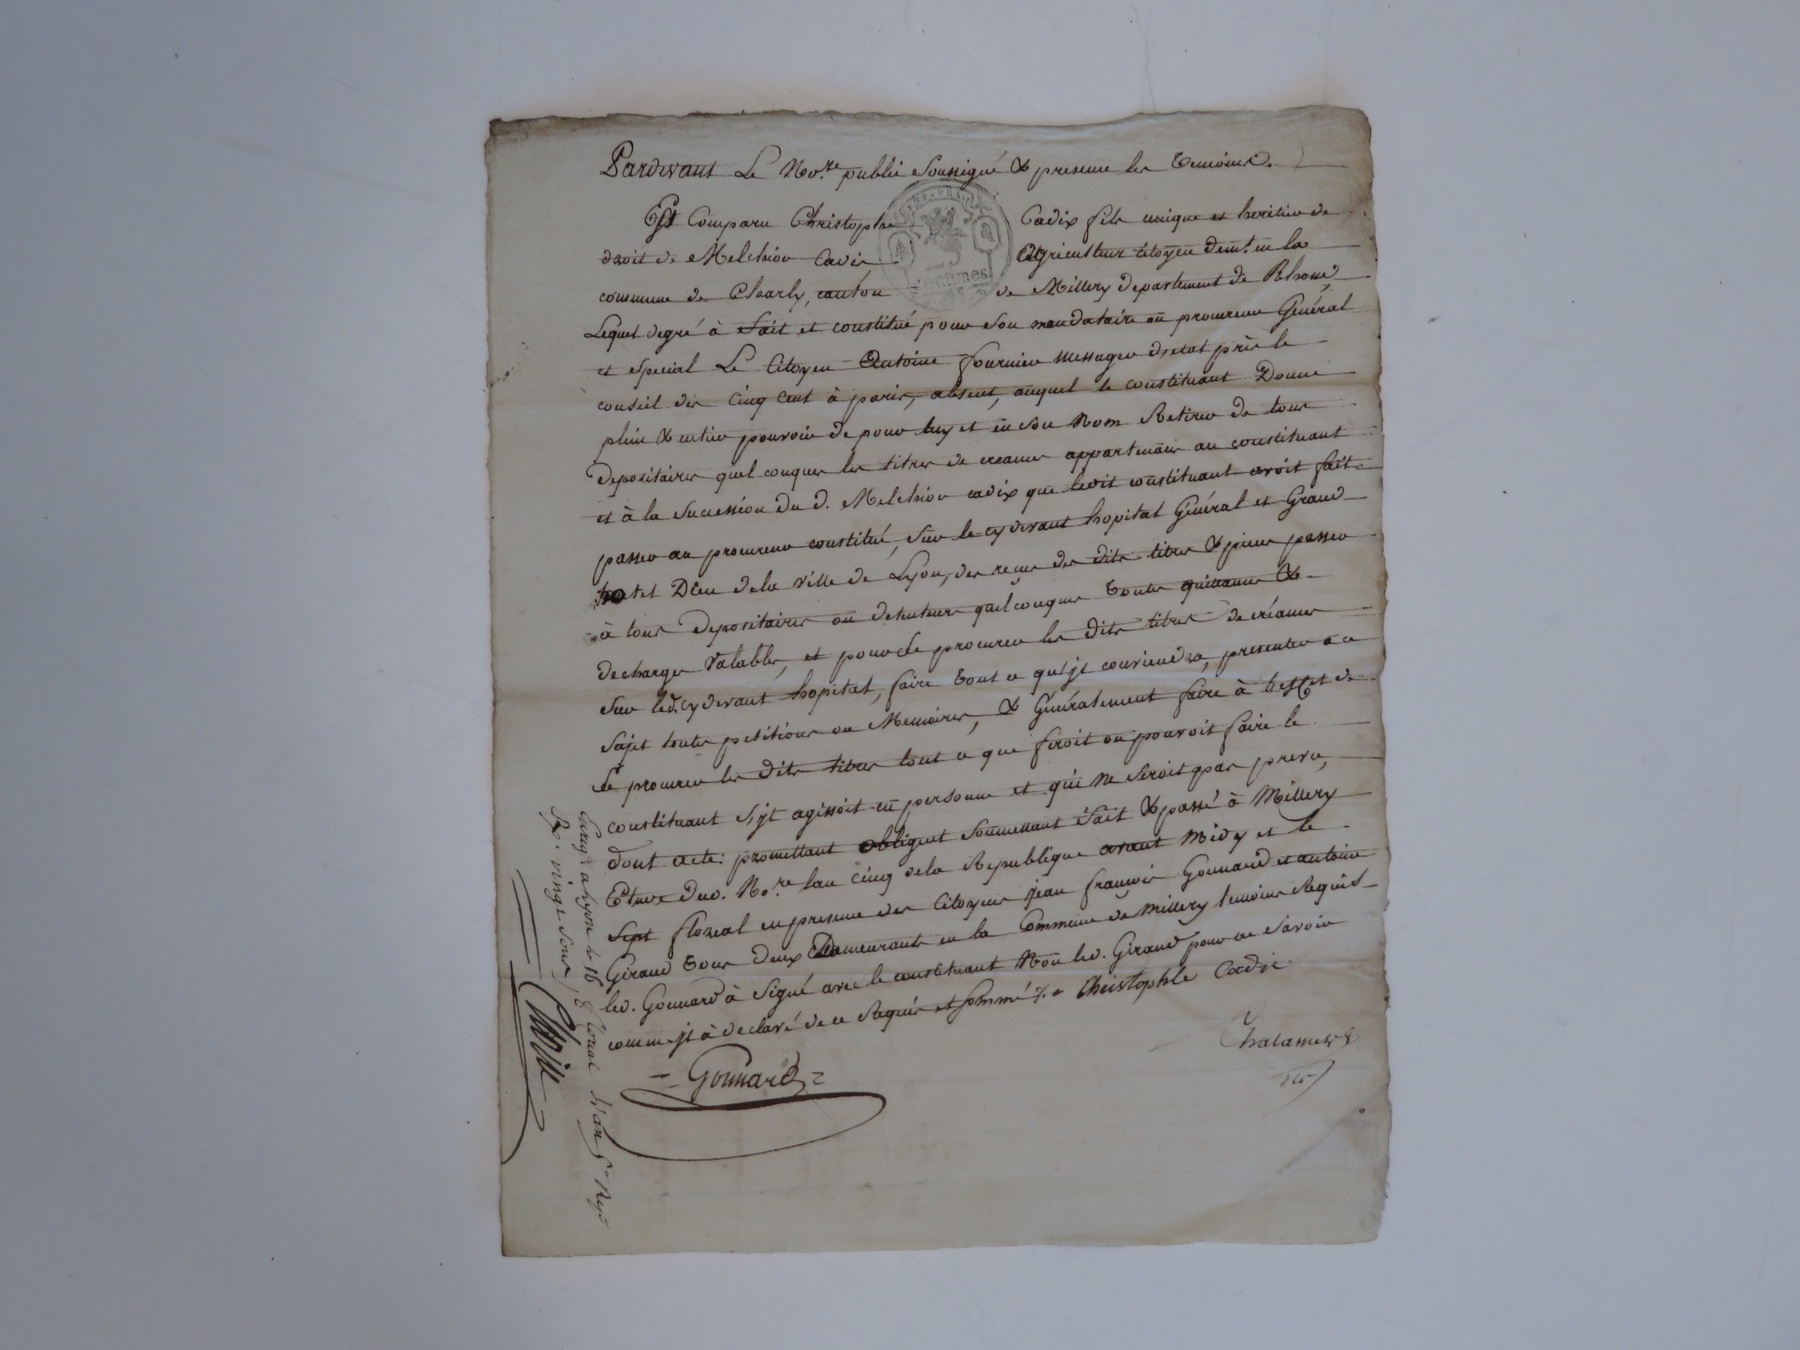 Pardevant Le No.re public soussigné & presence les temoins.
Est Comparu Christophe Cadix fils unique et heritier de
droit de Melchior Cadix Agriculteur citoyen demt. en la
commune de Charly, canton de Millery departement du Rhone,
Lequel degré à fait et constitué pour son mandataire ou procureur Général
et special Le Citoyen Antoine fournier messager detat près le
conseil des Cinq Cent à paris, absent, auquel le constituant Donne
plein & entier pouvoir de pour luy et en son Nom Retirer de tous
depositaires quelconques les titres de creance appartenants au constituant
et à la succession du d. Melchior cadix que ledit constituant avoit fait
passer au procureur constitué, sur le cy devant hopital Général et Grand
hotel Dieu de la ville de Lyon, des reçus des dits titres & pieces passer
à tous depositaires ou detenteurs quelconques toutes quittances &
decharges valables, et pour se procurer les dits titres de créances
sur led. cy devant hopital, faire tout ce qu'jl conviendra, presenter à ce
sujet toutes petitions ou Memoires, & Généralement faire à l'effet de
se procurer les dits titres tout ce que feroit ou pouvoit faire le
constituant s'jl agissoit en personne et qui ne seroit pas prevu,
dont acte: promettant obligeant soumettant fait & passé à Millery
Etude dud. No.re lan cinq de la Republique avant midy et le
sept floreal en presence des Citoyens jean françois Gonnard et antoine
Giraud tous deux Demeurants en la Commune de Millery temoins Requis
led. Gonnard à signé avec le constituant Non led. Giraud pour ne savoir
comme jl à declaré de ce Requis et sommé Christophle Cadix
Chalamel
No.re
Gonnard
Enrg.é a Lyon le 16 floreal L'an 5e Repe
R. vingt sous